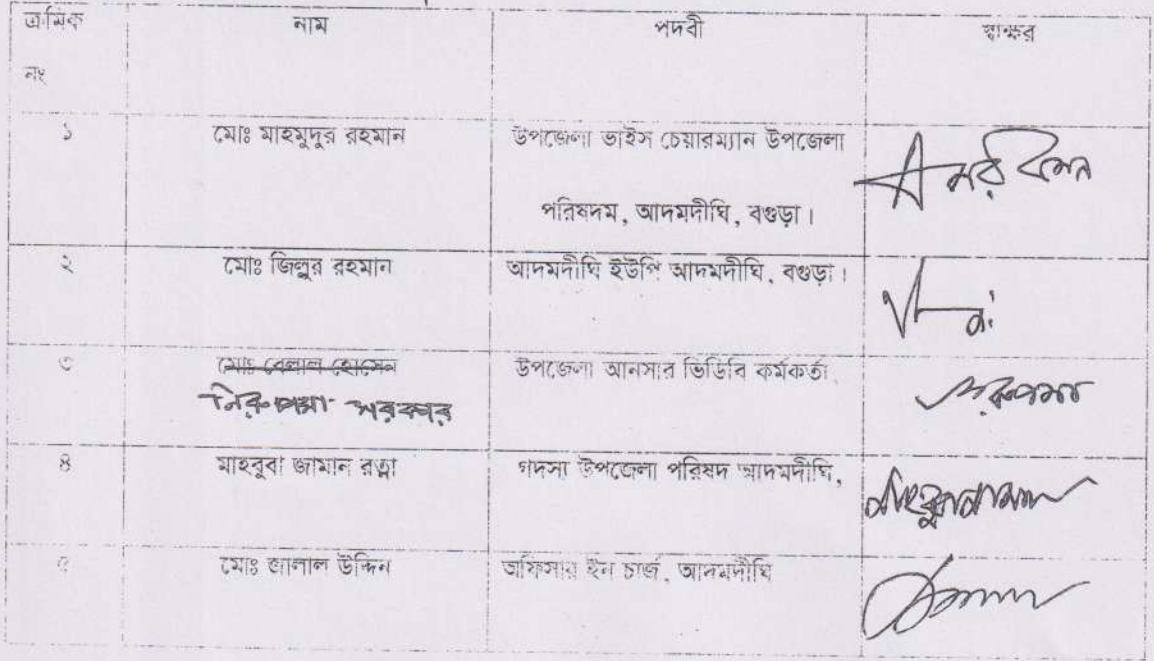 ক্রমিক নং নাম পদবী স্বাক্ষর
১ মোঃ মাহমুদুর রহমান উপজেলা ভাইস চেয়ারম্যান উপজেলা
পরিষদম, আদমদীঘি, বগুড়া।
২ মোঃ জিলুর রহমান আদমদীঘি ইউপি আদমদীঘি, বগুড়া।
৩ মোঃ বেলাল হোসেন উপজেলা আনসার ভিডিবি কর্মকর্তা
নিরুপমা সরকার
৪ মাহবুবা জামান রত্না সদস্য উপজেলা পরিষদ আদমদীঘি,
৫ মোঃ জালাল উদ্দিন অফিসার ইন চার্জ, আদমদীঘি